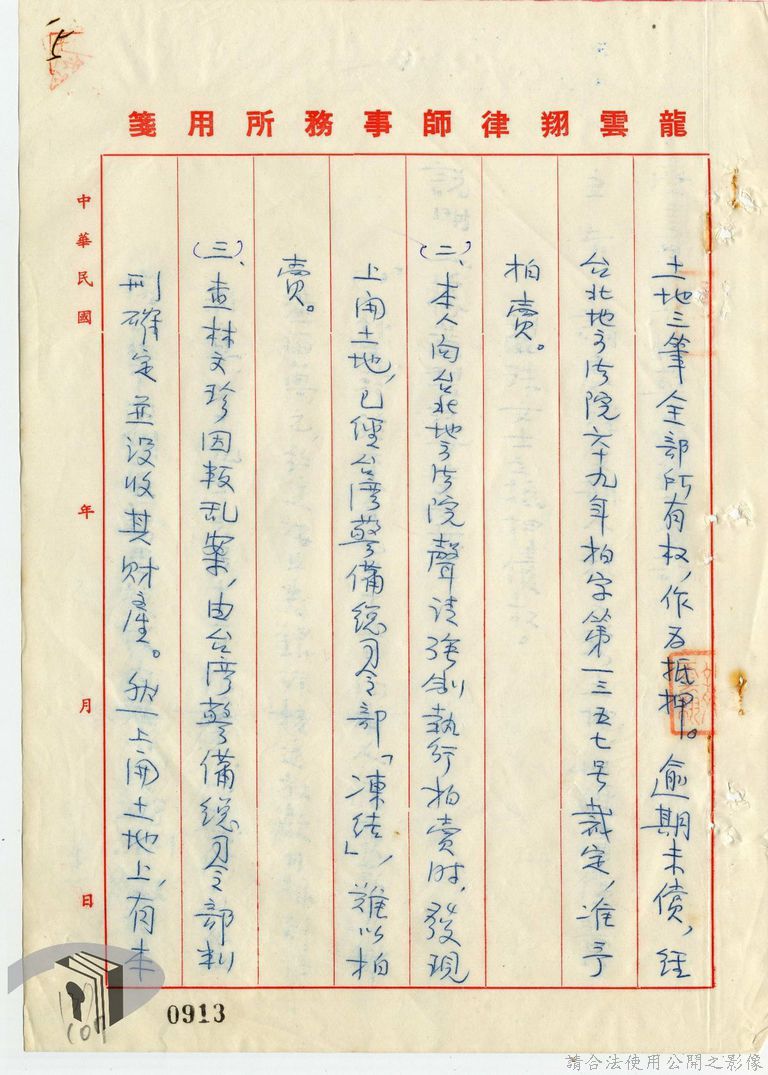 龍雲翔律師事務所用箋
土地三筆全部所有权，作为抵押。逾期未償，経
台北地方法院六十九年拍字第一三五七号裁定，准予
拍賣。
(二)、本人向台北地方法院聲請強制執行拍賣时，發現
上開土地，已經台湾警備総司令部「凍结」，難以拍
賣。
(三)、查林文珍因叛乱案，由台湾警備総司令部判
刑確定並没收其財產。然上開土地上，有本
中華民國 年 月 日
0913
請合法使用公開之影像